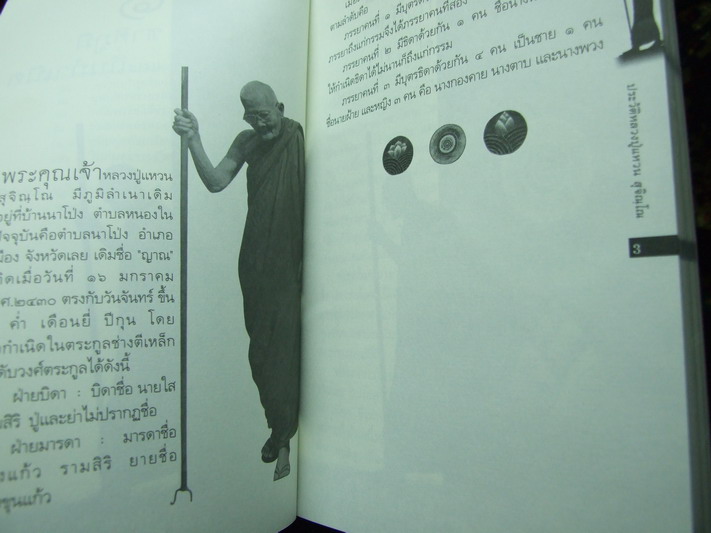 พระคุณเจ้าหลวงปู่แหวน
สุจิณฺโณ มีภูมิลำเนาเดิม
อยู่ที่บ้านนาโป่ง ตำบลหนองใน
ปัจจุบันคือตำบลนาโป่ง อำเภอ
เมือง จังหวัดเลย เดิมชื่อ "ญาณ"
เกิดเมื่อวันที่ ๑๖ มกราคม
พ.ศ.๒๔๓๐ ตรงกับวันจันทร์ ขึ้น
ค่ำ เดือนยี่ ปีกุน โดย
กำเนิดในตระกูลช่างตีเหล็ก
วงศ์ตระกูลได้ดังนี้
ฝ่ายบิดา : บิดาชื่อ นายใส
ปู่และย่าไม่ปรากฏชื่อ
ฝ่ายมารดา : มารดาชื่อ
แก้ว รามสิริ ยายชื่อ
ขุนแก้ว
ตามลำดับคือ
ภรรยาคนที่ ๑ มีบุตร
ภรรยาถึงแก่กรรมจึงได้ภรรยาคนที่สอง
ภรรยาคนที่ ๒ มีธิดาด้วยกัน ๑ คน
ให้กำเนิดธิดาได้ไม่นานก็ถึงแก่กรรม
ภรรยาคนที่ ๓ มีบุตรธิดาด้วยกัน ๔ คน เป็นชาย ๑ คน
ชื่อนายฝ้าย และหญิง ๓ คน คือ นางกองคาย นางตาบ และนางพวง
ประวัติหลวงปู่แหวน สุจิณฺโณ
3